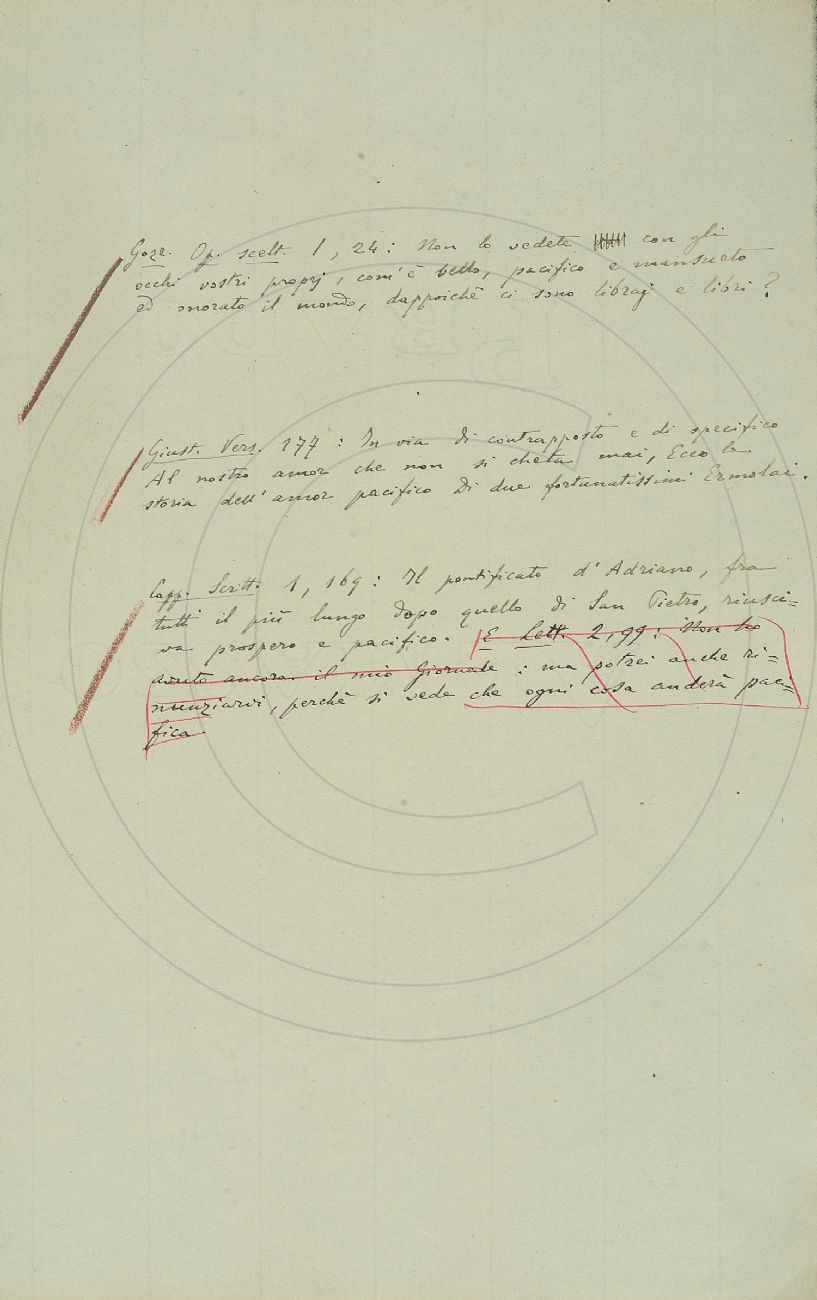 Gozz. Op. scelt. 1, 24: Non lo vedete con gli
occhi vostri proprj, com'è bello, pacifico e mansueto
ed onorato il mondo, dappoichè ci sono libraj e libri?
Giust. Vers. 177: In via di contrapposto e di specifico
Al nostro amor che non si cheta mai, Ecco la
storia dell'amor pacifico Di due fortunatissimi Ermolai.
Capp. Scritt. 1, 169: Il pontificato d'Adriano, fra
tutti il più lungo dopo quello di San Pietro, riusci=
va prospero e pacifico. E Lett. 2, 99: Non ho
avuto ancora il mio Giornale: ma potrei anche ri=
nunziarvi, perchè si vede che ogni cosa anderà paci=
fica.